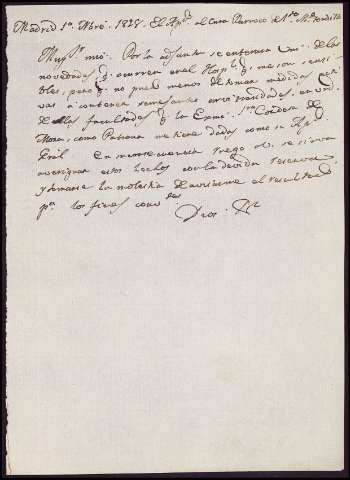 Madrid 1º Nbre. 1828. El Apdo. al Cura Parroco de
Muy Sr. mio: Por la adjunta se enterara Vm. de las
novedades q. ocurren en el Hospl. q. me son sensi-
bles, pero q. no puedo menos de tomar medidas
vas á contener semejantes arvitrariedades, en vrd.
de las facultades q. la Exma. Sra. Condesa de
Mora, como Patrona me tiene dadas como su Apo.
Gral. En consecuencia ruego á V. se sirva
averiguar estos hechos con la devida reserva
y tomarse la molestia de avisarme el resultado
pa. los fines convtes.
Dios. &a